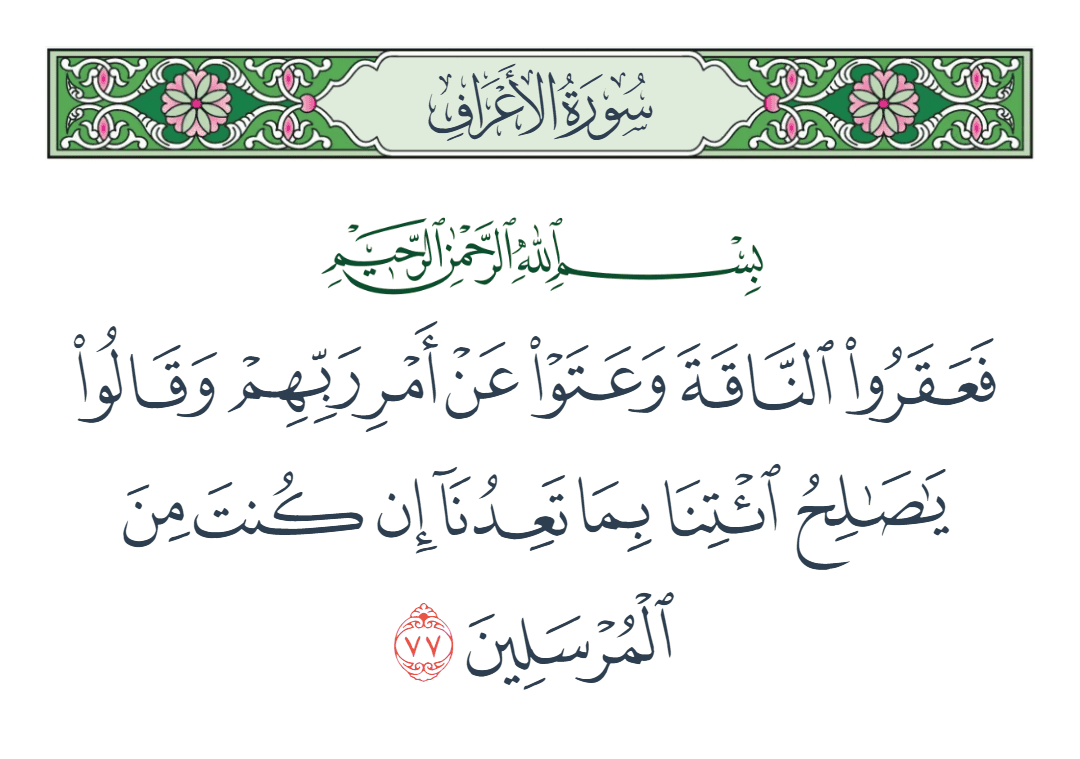 سُورَةُ الأَعْرَافِ
بِسْمِ ٱللَّهِ ٱلرَّحْمَٰنِ ٱلرَّحِيمِ
فَعَقَرُوا۟ ٱلنَّاقَةَ وَعَتَوْا۟ عَنْ أَمْرِ رَبِّهِمْ وَقَالُوا۟
يَٰصَٰلِحُ ٱئْتِنَا بِمَا تَعِدُنَآ إِن كُنتَ مِنَ
ٱلْمُرْسَلِينَ ٧٧